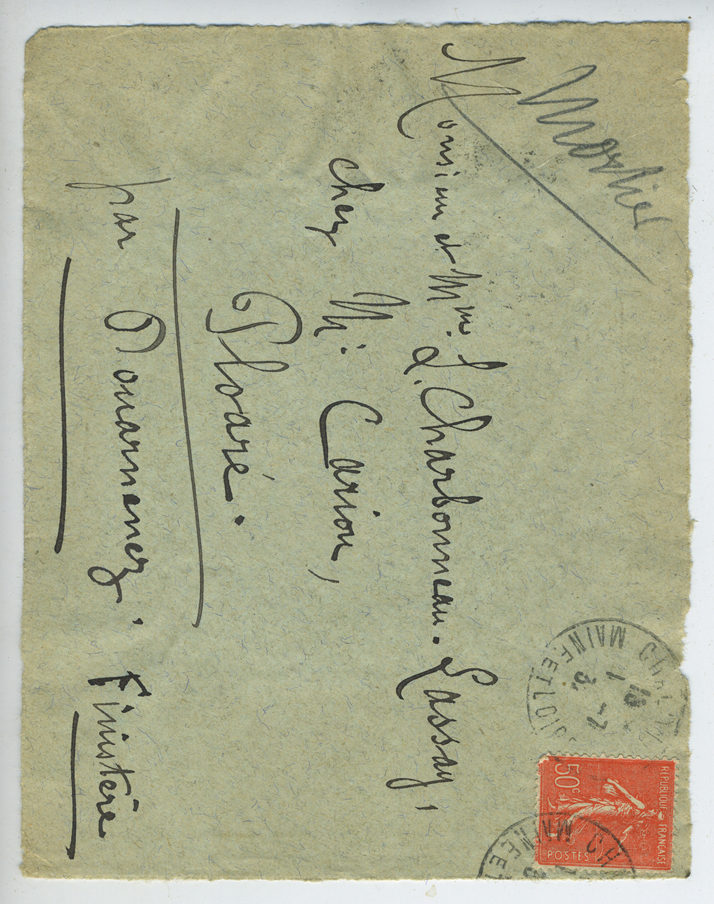 Mortier
Monsieur et Mme. L. Charbonneau-Lassay,
chez Mr. Cariou,
Ploaré.
par Douarnenez. Finistère
MAINE ET LOIRE
REPUBLIQUE FRANÇAISE
50c
POSTES
MAINE ET